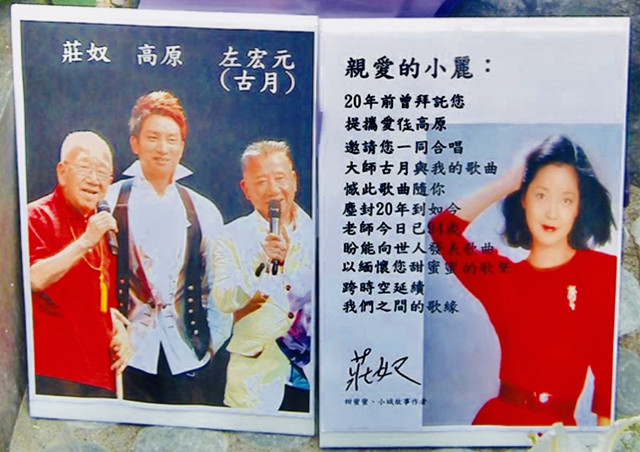 莊奴 高原 左宏元
(古月)
親愛的小麗：
20年前曾拜託您
提攜愛徒高原
邀請您一同合唱
大師古月與我的歌曲
憾此歌曲隨你
塵封20年到如今
老師今日已94歲
盼能向世人發表歌曲
以緬懷您甜蜜蜜的歌聲
跨時空延續
我們之間的歌緣
莊奴
甜蜜蜜、小城故事作者